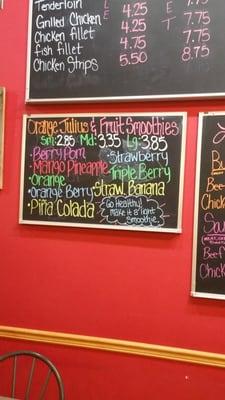 Tenderloin L 4.25 E 7.75
Grilled Chicken E 4.25 T 7.75
Chicken fillet 4.25 7.75
fish fillet 4.75 7.75
Chicken Strips 5.50 8.75
Orange Julius & Fruit Smoothies
Sm: 2.85 Md: 3.35 Lg: 3.85
-Berry Pom -Strawberry
-Mango Pineapple
-Orange -Triple Berry
-Orange Berry -Straw. Banana
-Piña Colada
Go Healthy!
make it a light
Smoothie.
Bee
Chick
Beef
Chick